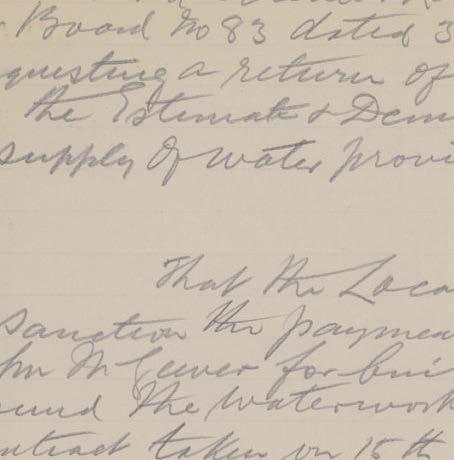 Board No 83 dated 3
questing a return of
the Estimate & Dem
supply of water provi
That the Loca
sanction the paymen
hn McGewer for bui
ound the waterwork
ontract taken on 15th